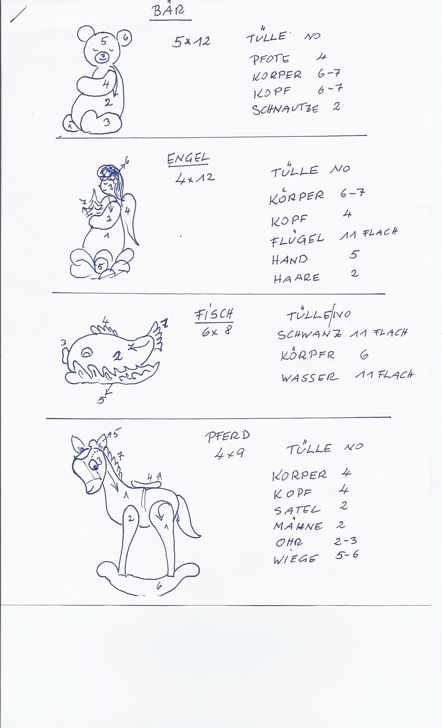 BÄR
5x12 TÜLLE NO
PFOTE 4
KÖRPER 6-7
KOPF 6-7
SCHNAUTZE 2
5 6
3
4
2
1 3
ENGEL
4x12 TÜLLE NO
KÖRPER 6-7
KOPF 4
FLÜGEL 11 FLACH
HAND 5
HAARE 2
6
3
7 2 4
1
5
FISCH
6x8 TÜLLE/NO
SCHWANZ 11 FLACH
KÖRPER 6
WASSER 11 FLACH
4 1
3 2
5
PFERD
4x9 TÜLLE NO
KÖRPER 4
KOPF 4
SATEL 2
MÄHNE 2
OHR 2-3
WIEGE 5-6
5
3 7
1 4
2 1
6